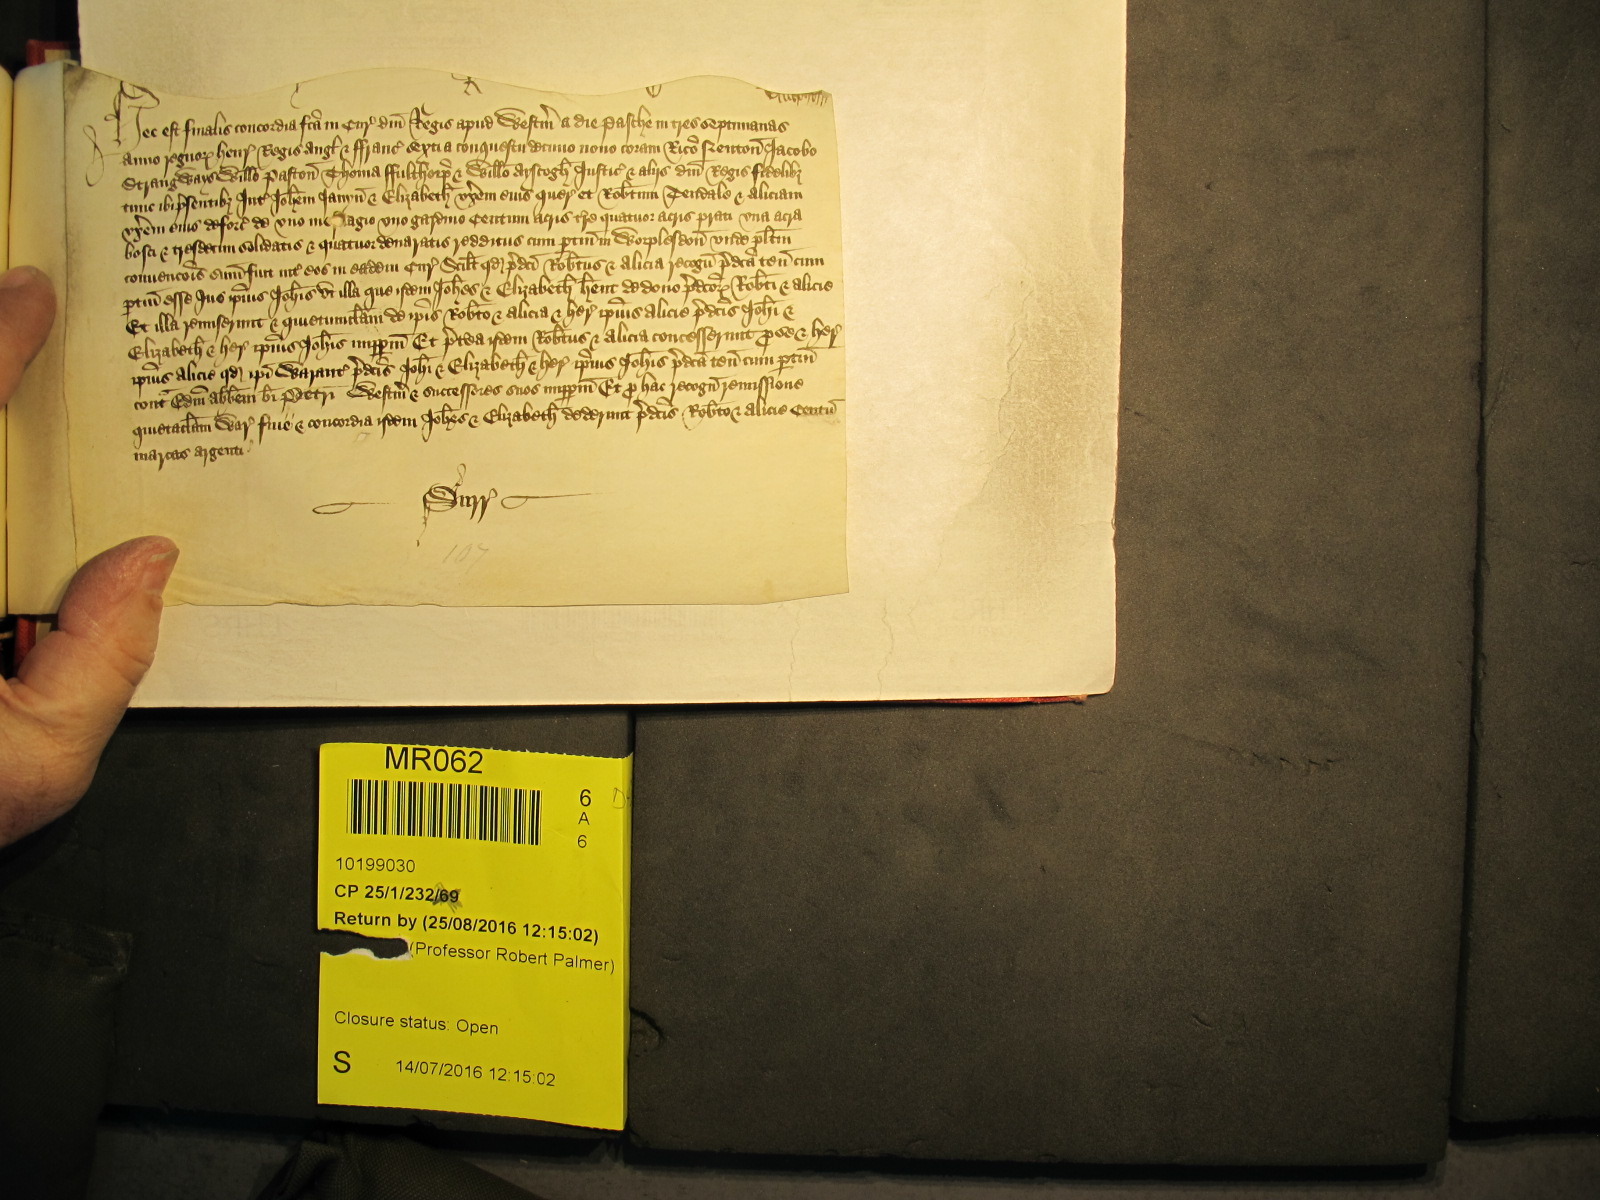 Hec est finalis concordia fca in Cur dni Regis apud Westm a die Pasche in tres septimanas
anno regnor henr Regis Angl & ffranc sexti a conquestu decimo nono coram Rico Neuton Jacobo
Strangways Willo Paston Thoma ffulthorp & Willo Ayscogh Justic & alijs dni Regis fidelibz
tunc ibi psentibz Int Johem Janyn & Elizabeth vxem eius quer et Robtum Tendale & Aliciam
vxem eius deforc de vno mesuagio vno gardino Centum acris tre quatuor acris prati vna acra
bosci & tresdecim solidatis & quatuor denaratis redditus cum ptin in Worplesdon vnde pltm
convencois sum fuit int eos in eadem Cur Scilt qd pdci Robtus & Alicia recogn pdca ten cum
ptin esse Jus ipius Johis vt illa que ijdem Johes & Elizabeth hent de dono pdcor Robti & Alicie
Et illa remiserunt & quietumclam de ipis Robto & Alicia & her ipius Alicie pdcis Johi &
Elizabeth & her ipius Johis imppm Et pterea ijdem Robtus & Alicia concesserunt p se & her
ipius Alicie qd ipi Warant pdcis Johi & Elizabeth & her ipius Johis pdca ten cum ptin
cont Edm abbem bi Petri Westm & successores suos imppm Et p hac recogn remissione
quietaclam War fine & concordia ijdem Johes & Elizabeth dederunt pdcis Robto & Alicie Centu
marcas argenti
Surr
107
MR062
6
A
6
10199030
CP 25/1/232/69
Return by (25/08/2016 12:15:02)
(Professor Robert Palmer)
Closure status: Open
S 14/07/2016 12:15:02